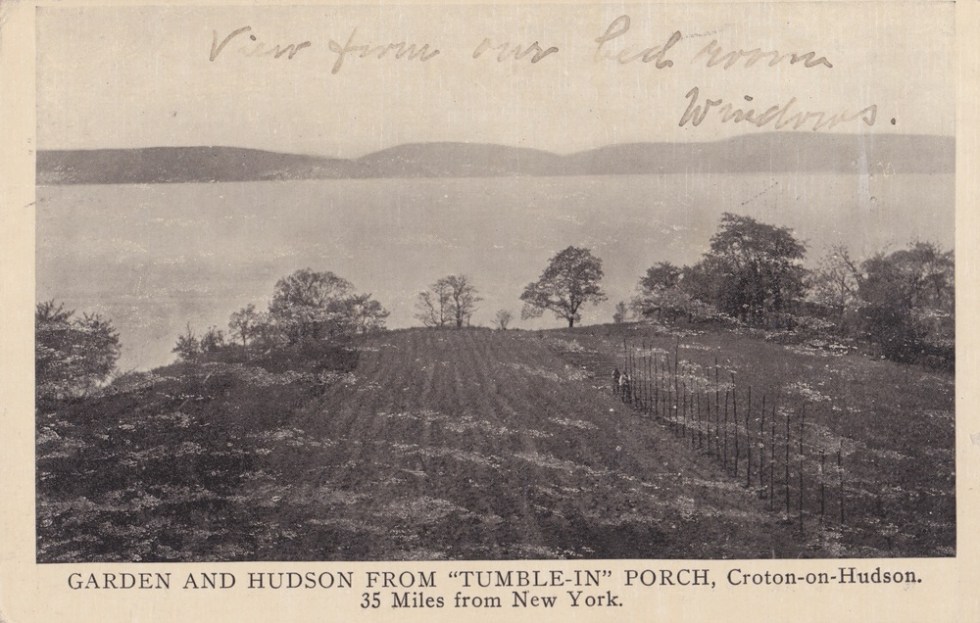 View from our bed room
Windows.
GARDEN AND HUDSON FROM "TUMBLE-IN" PORCH, Croton-on-Hudson.
35 Miles from New York.